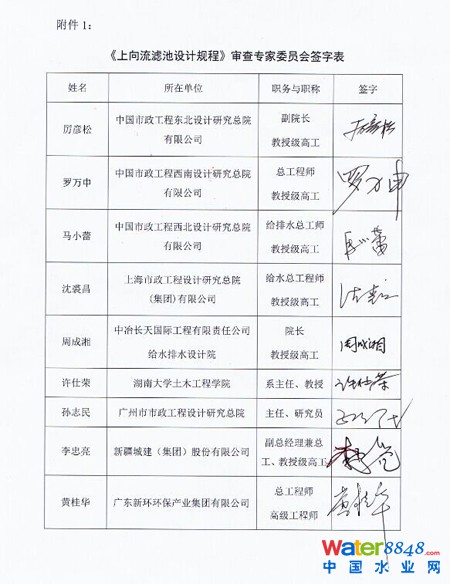 附件1:
《上向流滤池设计规程》审查专家委员会签字表
姓名 所在单位 职务与职称 签字
厉彦松 中国市政工程东北设计研究总院 有限公司 副院长 教授级高工 厉彦松
罗万申 中国市政工程西南设计研究总院 有限公司 总工程师 教授级高工 罗万申
马小蕾 中国市政工程西北设计研究总院 有限公司 给排水总工师 教授级高工
沈裘昌 上海市政工程设计研究总院 (集团)有限公司 给水总工程师 教授级高工
周成湘 中冶长天国际工程有限责任公司 给水排水设计院 院长 教授级高工 周成湘
许仕荣 湖南大学土木工程学院 系主任、教授 许仕荣
孙志民 广州市市政工程设计研究总院 主任、研究员
李忠亮 新疆城建(集团)股份有限公司 副总经理兼总 工、教授级高工
黄桂华 广东新环环保产业集团有限公司 总工程师 高级工程师 黄桂华
Water8848.com
中国水业网